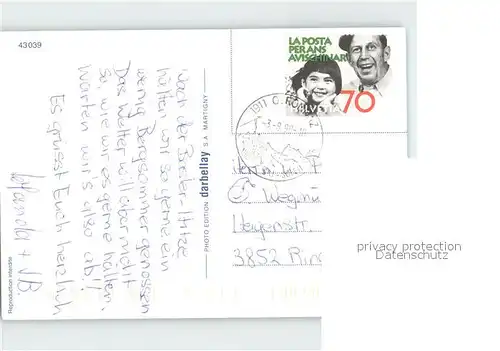 43039
Nach der Basler-Hitze
hätten wir so gerne ein
wenig Bergsommer genossen
Das Wetter will aber nicht
so, wie wir es gerne hätten.
Warten wir's also ab!!
Es grüsst Euch herzlich
+ B.
Reproduction interdite
PHOTO EDITION darbellay S.A. MARTIGNY
LA POSTA
PER ANS
AVISCHINAR
HELVETIA 70
1911 O
3852 Rin
privacy protection
Datenschutz